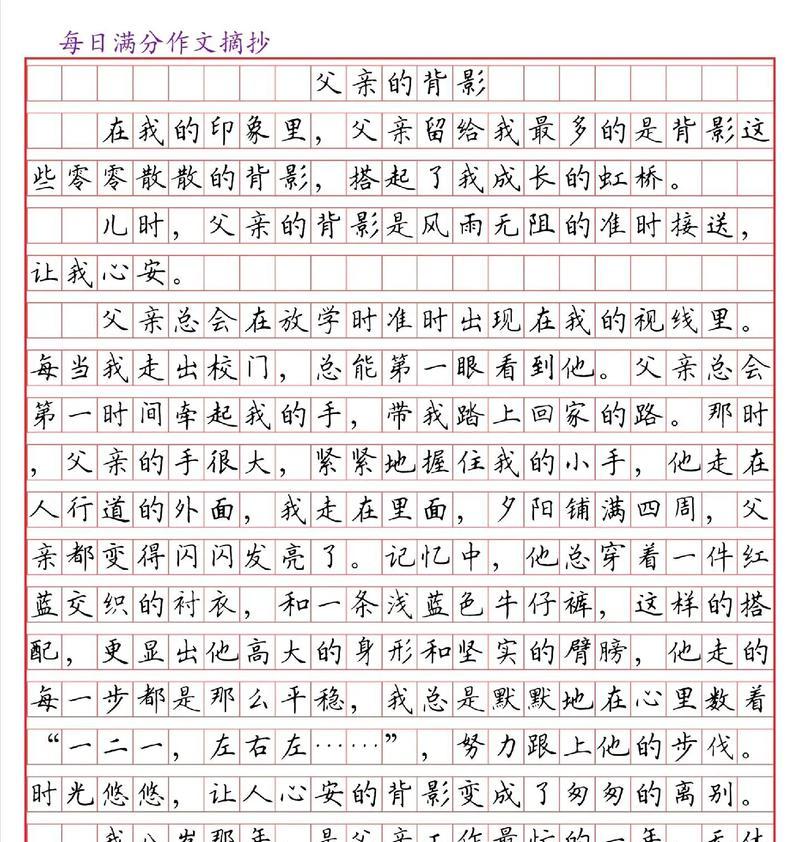 每日满分作文摘抄
父亲的背影
在我的印象里，父亲留给我最多的是背影这
些零零散散的背影，搭起了我成长的虹桥。
儿时，父亲的背影是风雨无阻的准时接送，
让我心安。
父亲总会在放学时准时出现在我的视线里。
每当我走出校门，总能第一眼看到他。父亲总会
第一时间牵起我的手，带我踏上回家的路。那时
，父亲的手很大，紧紧地握住我的小手，他走在
人行道的外面，我走在里面，夕阳铺满四周，父
亲都变得闪闪发亮了。记忆中，他总穿着一件红
蓝交织的衬衣，和一条浅蓝色牛仔裤，这样的搭
配，更显出他高大的身形和坚实的臂膀，他走的
每一步都是那么平稳，我总是默默地在心里数着
“一二一，左右左……”，努力跟上他的步伐。
时光悠悠，让人心安的背影变成了匆匆的离别。
我八岁那年，是父亲工作最忙的一年，